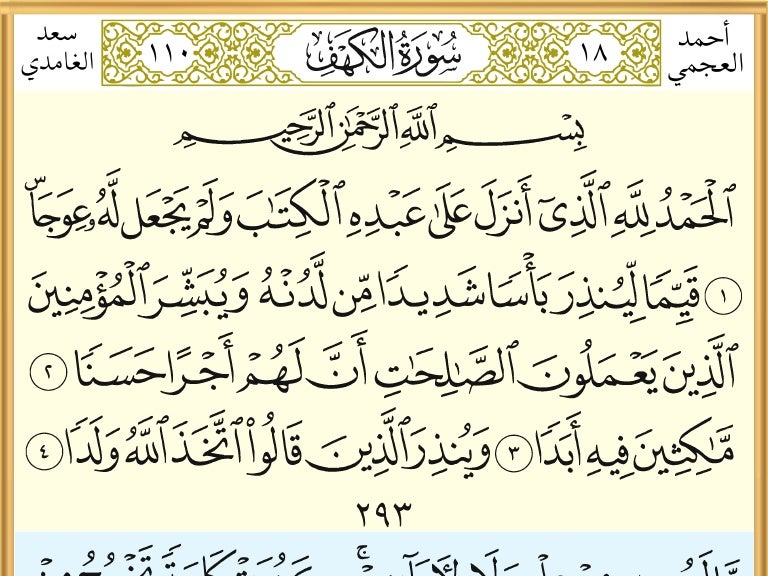 أحمد العجمي
١٨
سُورَةُ الكَهْفِ
١١٠
سعد الغامدي
بِسْمِ ٱللَّهِ ٱلرَّحْمَٰنِ ٱلرَّحِيمِ
ٱلْحَمْدُ لِلَّهِ ٱلَّذِىٓ أَنزَلَ عَلَىٰ عَبْدِهِ ٱلْكِتَٰبَ وَلَمْ يَجْعَل لَّهُۥ عِوَجَاۜ
١ قَيِّمًا لِّيُنذِرَ بَأْسًا شَدِيدًا مِّن لَّدُنْهُ وَيُبَشِّرَ ٱلْمُؤْمِنِينَ
ٱلَّذِينَ يَعْمَلُونَ ٱلصَّٰلِحَٰتِ أَنَّ لَهُمْ أَجْرًا حَسَنًا ٢
مَّٰكِثِينَ فِيهِ أَبَدًا ٣ وَيُنذِرَ ٱلَّذِينَ قَالُوا۟ ٱتَّخَذَ ٱللَّهُ وَلَدًا ٤
٢٩٣